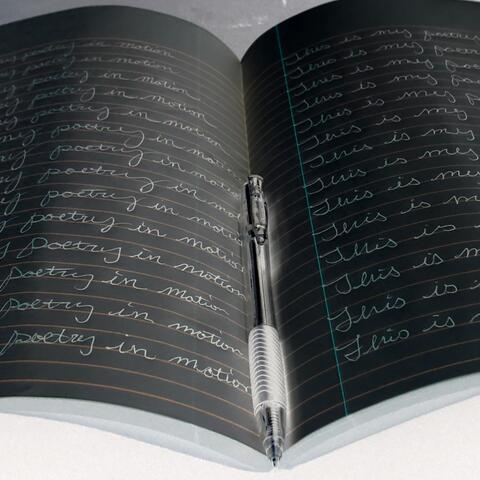 poetry in motion
poetry in motion
poetry in motion
poetry in motion
poetry in motion
poetry in motion
my poetry in motion
poetry in motion
poetry in
poetry in motion
Poetry in motion
Poetry in motion
Poetry in motion
poetry in motion
This is my poetry
This is my
This is my
This is my
This is my
This is my
This is my
This is my
This is my
This is
This is
This is
This is
This is